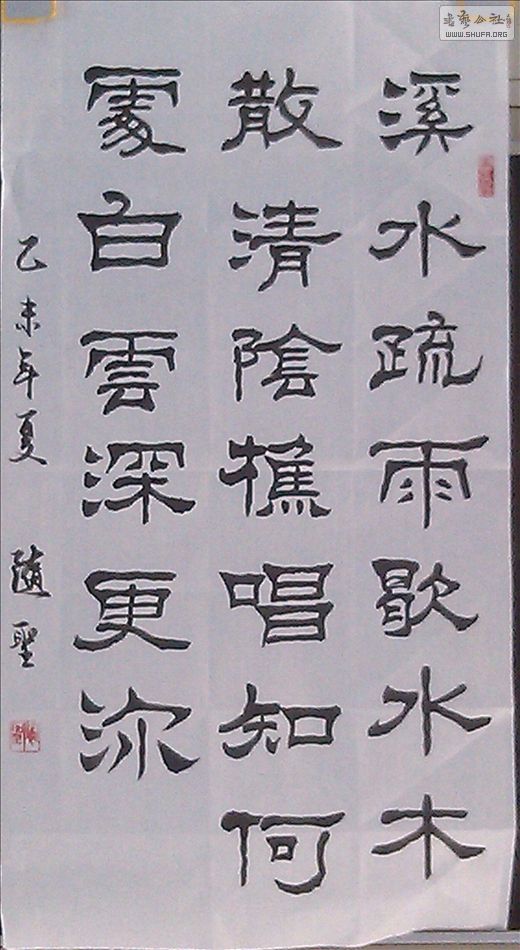 溪水疏雨歇水木
散清陰樵唱知何
處白雲深更深
乙未年夏 隨聖
書藝公社
WWW.SHUFA.ORG